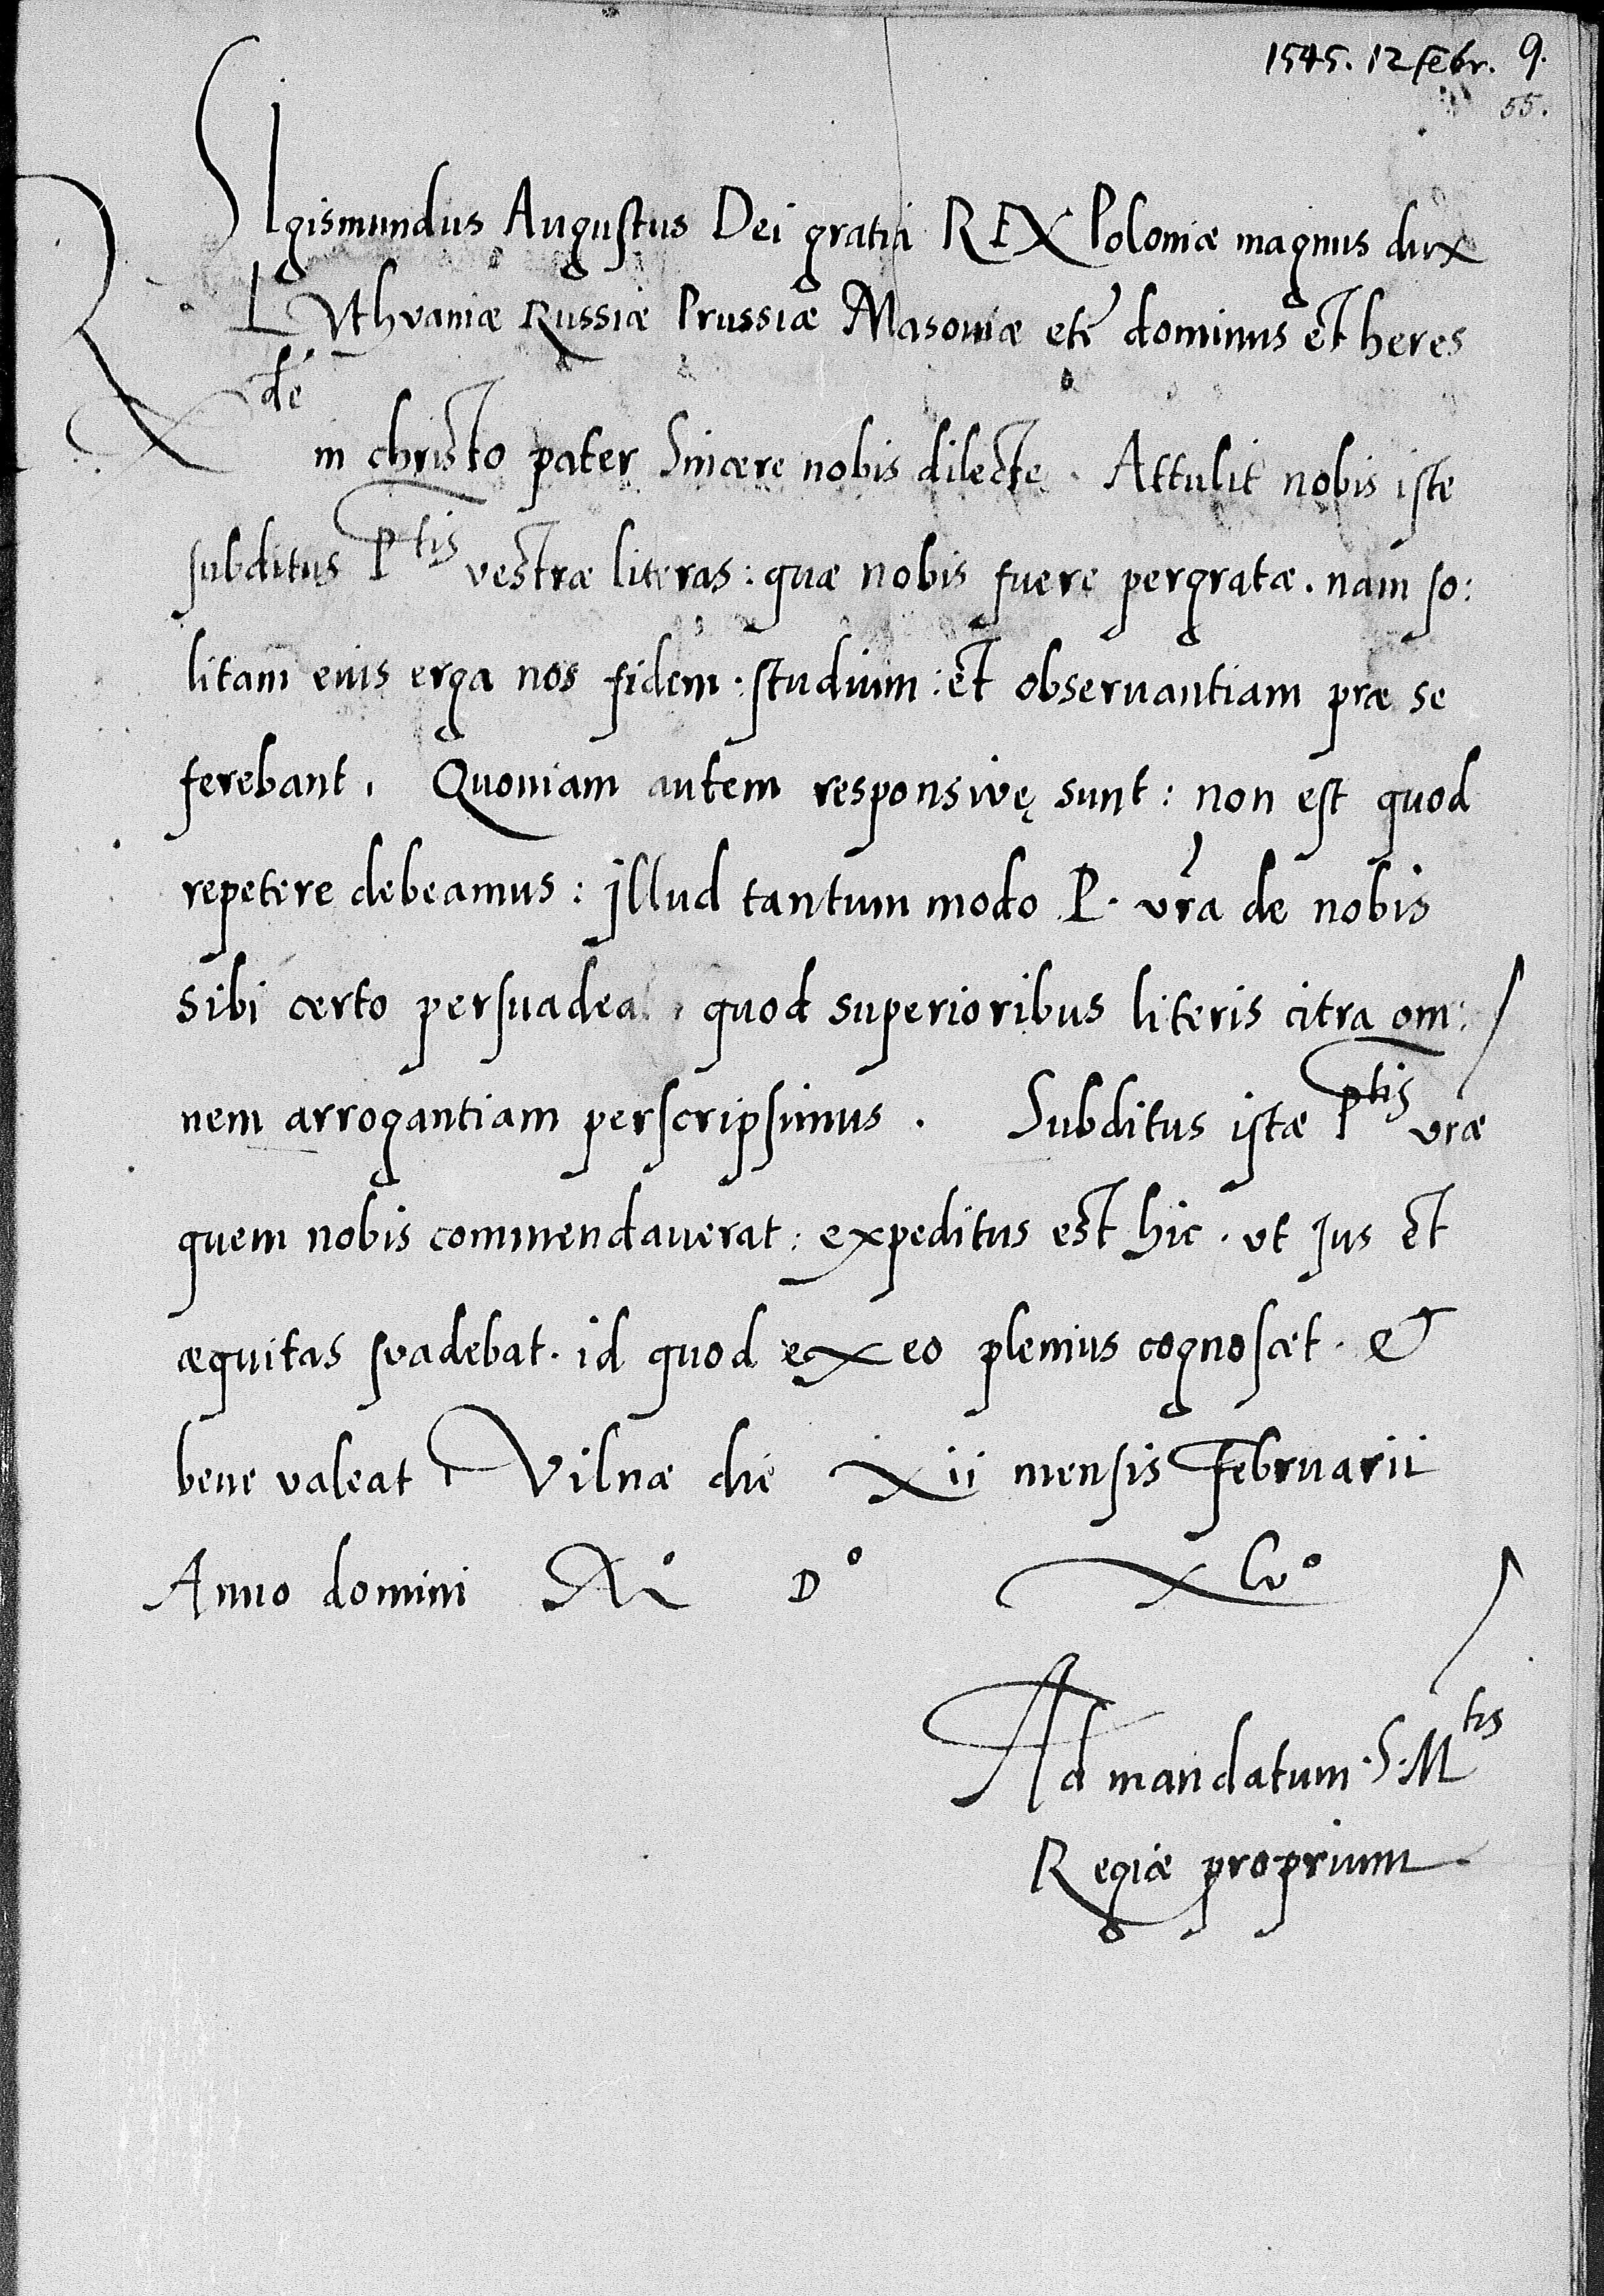 1545. 12 febr. 9.
55.
SIgismundus Augustus Dei gratia REX Poloniæ magnus dux
LVthvaniæ Russiæ Prussiæ Masoviæ etc̄ dominus et heres
Rde in christo pater Sincere nobis dilecte. Attulit nobis iste
subditus Ptis vestræ literas: quæ nobis fuere pergratæ. nam so:
litam eius erga nos fidem: studium: et observantiam præ se
ferebant. Quoniam autem responsivę sunt: non est quod
repetere debeamus: Illud tantum modo P. vr̄a de nobis
sibi certo persuadea, quod superioribus literis citra om:
nem arrogantiam perscripsimus. Subditus istæ Ptis vræ
quem nobis commendaverat: expeditus est hic. ut Jus et
æquitas svadebat. id quod ex eo plenius cognoscet. Et
bene valeat Vilnæ die Xii mensis Februarii
Anno domini Mº Dº XLvº
Ad mandatum .S. Mtis
Regiæ proprium